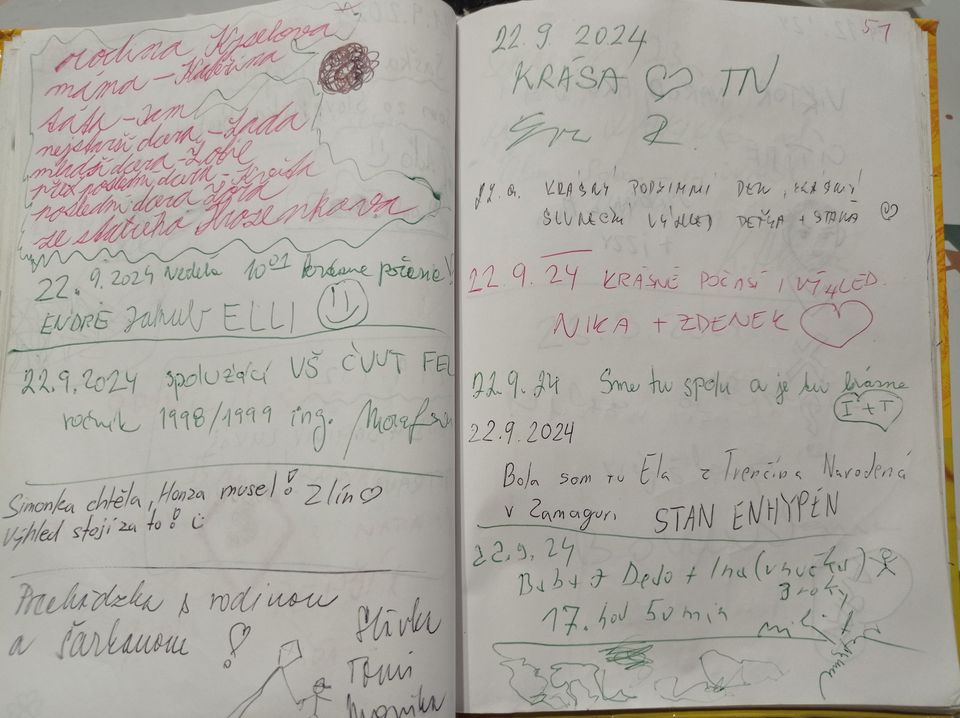 rodina Kyselova
máma - Kateřina
táta - Jan
nejstarší dcera - Lada
mladší dcera - Zofie
poslední dcera
ze statečka
22. 9. 2024 Neděla 10 01 krásne počasie!
ENDRE Jakub ELLI
22.9.2024 spolužáci VŠ ČVUT FEL
ročník 1998/1999 ing.
Simonka chtěla, Honza musel! Zlín
Výhled stojí za to!
Prechádzka s rodinou
a šarkanom!
Slávka
Tomi
Monika
51
22. 9. 2024
KRÁSA TN
22. 9. KRÁSNÝ PODZIMNÍ DEN, KRÁSNÝ
SLUNEČNÍ VÝHLED + STAŇA
22.9.24 KRÁSNÉ POČASÍ I VÝHLED.
NIKA + ZDENEK
22.9.24 Sme tu spolu a je tu krásne
I + T
22.9.2024
Bola som tu Ela z Trenčína Narodená
v Zamaguri STAN ENHYPEN
22.9.24
Babka + Dedo + Ina (vnučka)
3 roky
17. hod 50 min